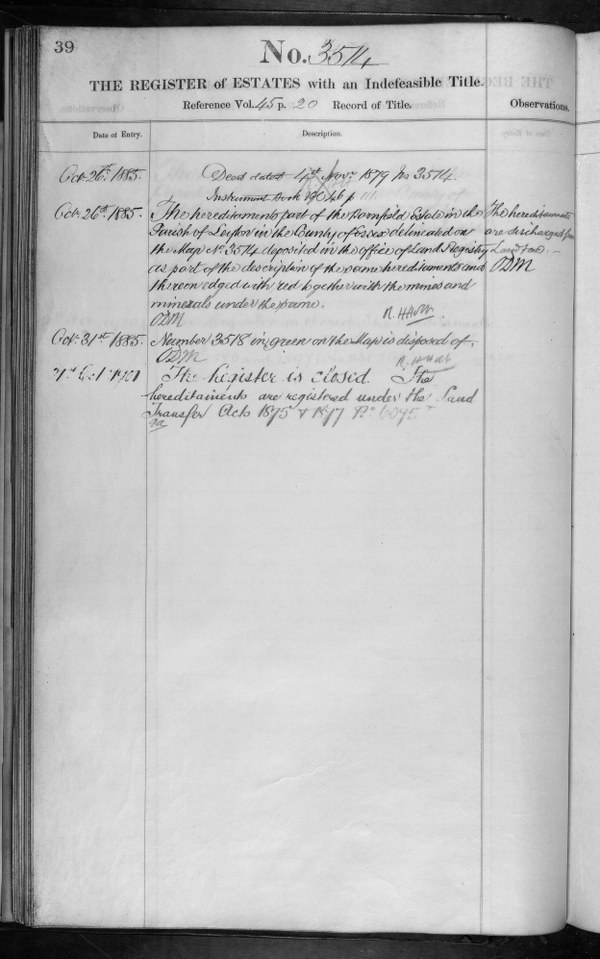 39
No. 3514
THE REGISTER of ESTATES with an Indefeasible Title.
Reference Vol. 45 p. 20 Record of Title.
Observations.
Date of Entry.
Description.
Oct. 26th. 1885. Deed dated 4th Novr. 1879 No 3514.
Instrument Book p
Oct. 26th. 1885. The hereditaments part of the Estate in the
Parish of Leyton in the County of Essex delineated on
the Map No. 3514 deposited in the office of Land Registry
as part of the description of the same hereditaments and
thereon edged with red together with the mines and
minerals under the same.
ODM
The hereditaments
are discharged from
Land Tax. -
ODM
Oct. 31st. 1885. Number 3518 in green on the Map is disposed of.
ODM
1901 The Register is closed. The
hereditaments are registered under the Land
Transfer Acts 1875 &